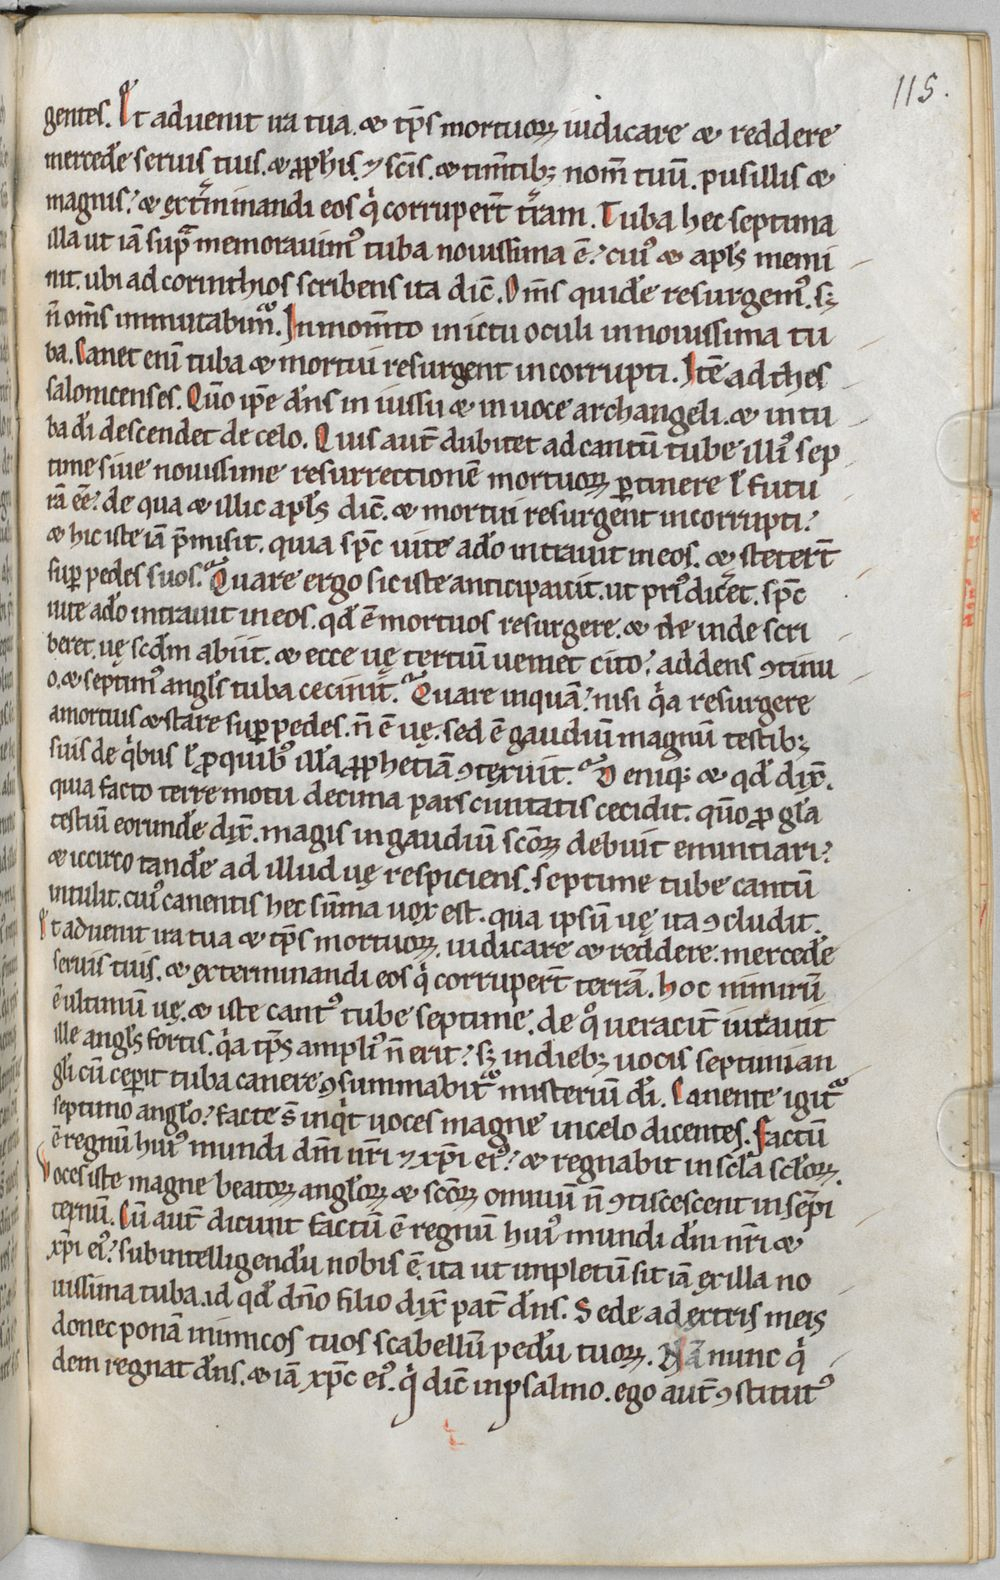 115.
gentes. Et aduenit ira tua. & tp̄s mortuoꝝ iudicare & reddere
mercedē seruis tuis. & ꝓphis. ⁊ sc̄is. & timētibꝫ nom̄ tuū. pusillis &
magnis. & ext̄minandi eos q̇ corruper̄t t̄ram. Tuba hec septima
illa ut iā supͣ memorauimꝰ tuba nouissima ē. cuiꝰ & apl̄s memi
nit. ubi ad corinthios scribens ita dic̄. Om̄s quidē resurgemꝰ. sꝫ
n̄ om̄s immutabimur. In mom̄to in ictu oculi in nouissima tu
ba. Canet enī tuba & mortui resurgent incorrupti. Itē ad thes
salonicenses. Qūo ip̄e dn̄s in iussu & in uoce archangeli. & in tu
ba dī descendet de celo. Quis aut̄ dubitet ad cantū tube illiꝰ sep
time siue nouissime resurrectionē mortuoꝝ ꝑtinere ł futu
rā eē. de qua & illic apl̄s dic̄. & mortui resurgent incorrupti.
& hic iste iā p̄misit. quia sp̄c uite a dō intrauit in eos. & steter̄t
suꝑ pedes suos. Quare ergo sic iste anticipauit. ut priꝰ dic̄et. sp̄c
uite a dō intrauit in eos. qd̄ ē mortuos resurgere. & de inde scri
beret. uę scd̄m abiit. & ecce uę tertiū ueniet cito. addens ꝯtinu
o. & septimꝰ angl̄s tuba cecinit. Quare inquā. nisi q̇a resurgere
a mortuis & stare suꝑ pedes. n̄ ē uę. sed ē gaudiū magnū testibꝫ
suis de q̇bus ł ꝓ quibꝰ illā ꝓphetiā ꝯteruit. Deniqꝫ & qd̄ dix̄.
quia facto terre motu decima pars ciuitatis cecidit. qūo ꝓ gl̄a
testiū eorundē dix̄. magis in gaudiū sc̄oꝝ debuit enuntiari.
& iccirco tandē ad illud uę respiciens. septime tube cantū
intulit. cuiꝰ canentis hec sūma uox est. qua ipsū uę ita ꝯcludit.
Et aduenit ira tua & tp̄s mortuoꝝ. iudicare & reddere mercedē
seruis tuis. & exterminandi eos q̇ corruper̄t terrā. hoc nimirū
ē ultimum uę. & iste cantꝰ tube septime. de qͦ ueracit̄ iurauit
ille angl̄s fortis. q̇a tp̄s ampliꝰ n̄ erit. sꝫ in diebꝫ uocis septimi an
gl̄i cū ceperit tuba canere ꝯsummabitur misteriū dī. Canente igitur
septimo anglō. facte s̄ inq̇t uoces magne in celo dicentes. Factū
ē regnū huiꝰ mundi dn̄i nr̄i ⁊ xp̄i eiꝰ. & regnabit in scl̄a scl̄oꝝ.
Voces iste magne beatoꝝ angl̄oꝝ & sc̄oꝝ omniū n̄ ꝯticescent in sēpi
ternū. Cū aut̄ dicunt factū ē regnū huiꝰ mundi dn̄i nr̄i &
xp̄i eiꝰ. subintelligendū nobis ē. ita ut impletū sit iā ex illa no
uissima tuba. id qd̄ dn̄o filio dix̄ pat̄ dn̄s. Sede a dextris meis
donec ponā inimicos tuos scabellū pedū tuoꝝ. Nā nunc q̇
dem regnat dn̄s. & iā xp̄c eiꝰ. q̇ dic̄ in psalmo. ego aut̄ ꝯstitutꝰ